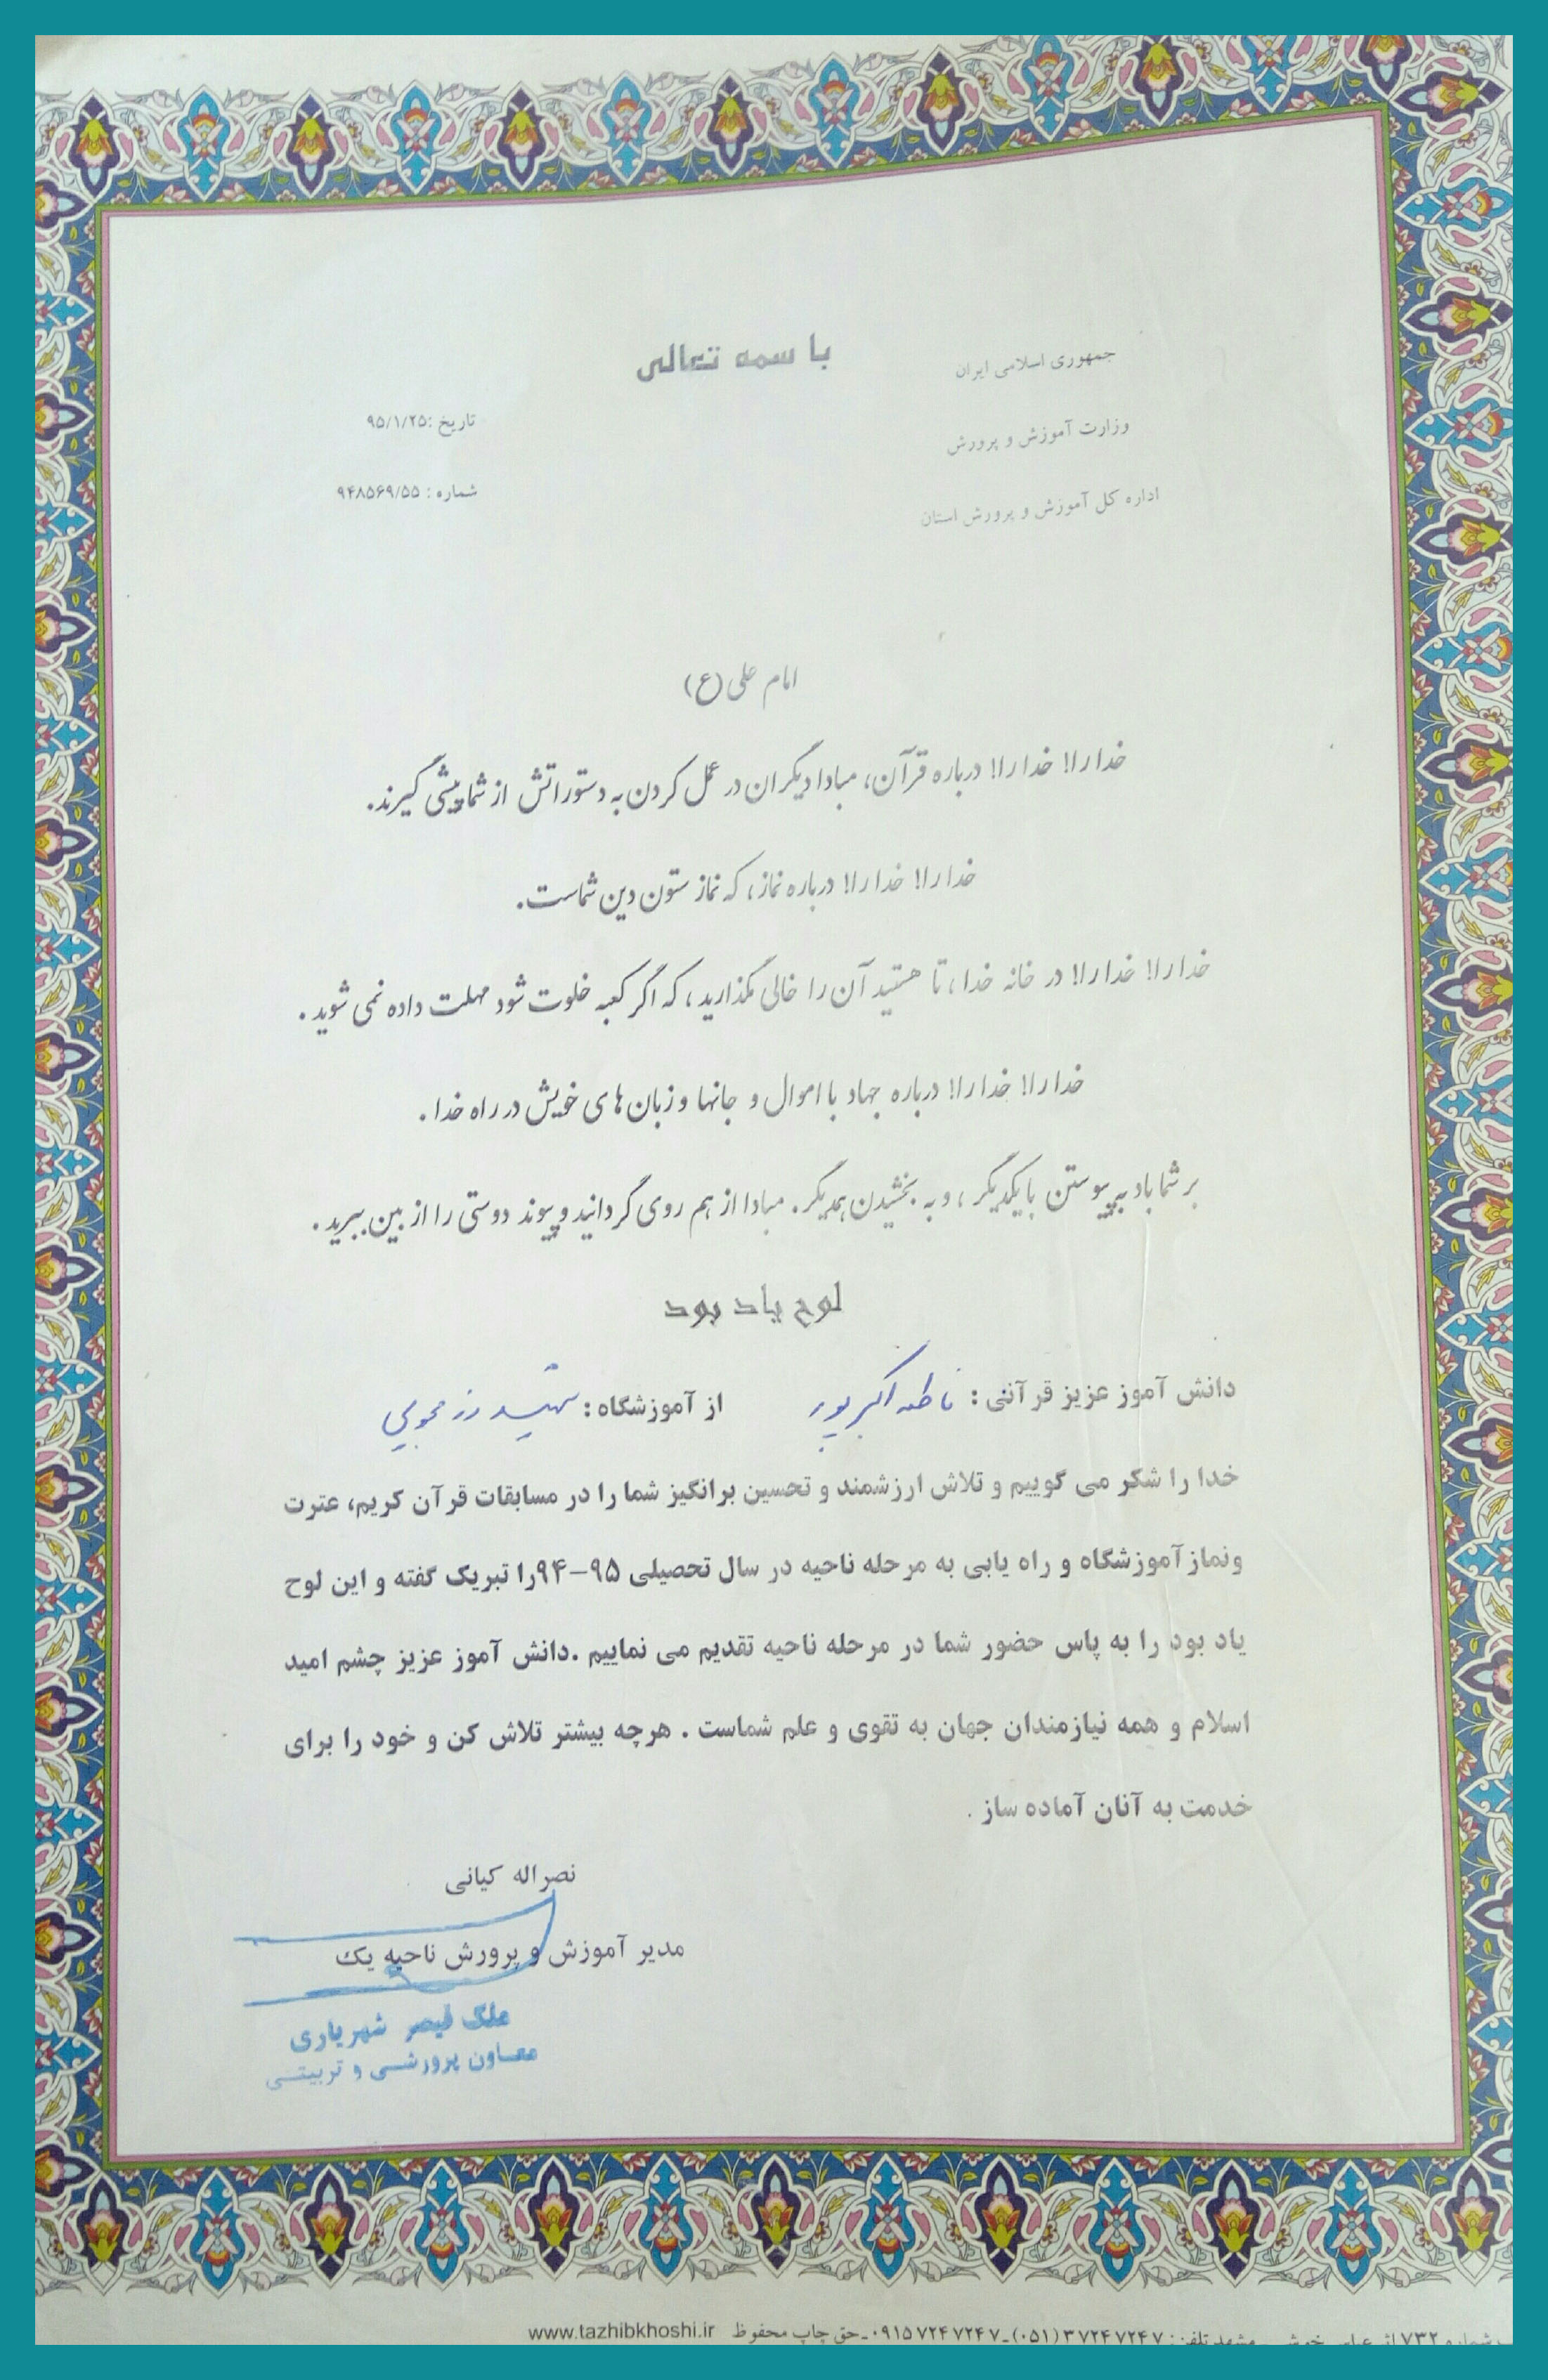 با سمه تعالی
جمهوری اسلامی ایران
وزارت آموزش و پرورش
اداره کل آموزش و پرورش استان
تاریخ :۹۵/۱/۲۵
شماره : ۹۴۸۵۶۹/۵۵
امام علی (ع)
خدا را! خدا را! درباره قرآن، مبادا دیگران در عمل کردن به دستوراتش از شما پیشی گیرند.
خدا را! خدا را! درباره نماز، که نماز ستون دین شماست.
خدا را! خدا را! در خانه خدا، تا هستید آن را خالی مگذارید، که اگر کعبه خلوت شود مهلت داده نمی شوید.
خدا را! خدا را! درباره جهاد با اموال و جانها و زبان های خویش در راه خدا.
بر شما باد به پیوستن با یکدیگر، و به بخشیدن همدیگر. مبادا از هم روی گردانید و پیوند دوستی را از بین ببرید.
لوح یاد بود
دانش آموز عزیز قرآنی : فاطمه اکبرپور از آموزشگاه : شهید
خدا را شکر می گوییم و تلاش ارزشمند و تحسین برانگیز شما را در مسابقات قرآن کریم، عترت
ونماز آموزشگاه و راه یابی به مرحله ناحیه در سال تحصیلی ۹۵–۹۴را تبریک گفته و این لوح
یاد بود را به پاس حضور شما در مرحله ناحیه تقدیم می نماییم .دانش آموز عزیز چشم امید
اسلام و همه نیازمندان جهان به تقوی و علم شماست . هرچه بیشتر تلاش کن و خود را برای
خدمت به آنان آماده ساز .
نصراله کیانی
مدیر آموزش و پرورش ناحیه یک
ملک قیصر شهریاری
معاون پرورشی و تربیتی
۷۳۲ مشهد تلفن: ۳۷۲۴۷۲۴۷ (۰۵۱) ـ ۰۹۱۵۷۲۴۷۲۴۷ـ حق چاپ محفوظ www.tazhibkhoshi.ir